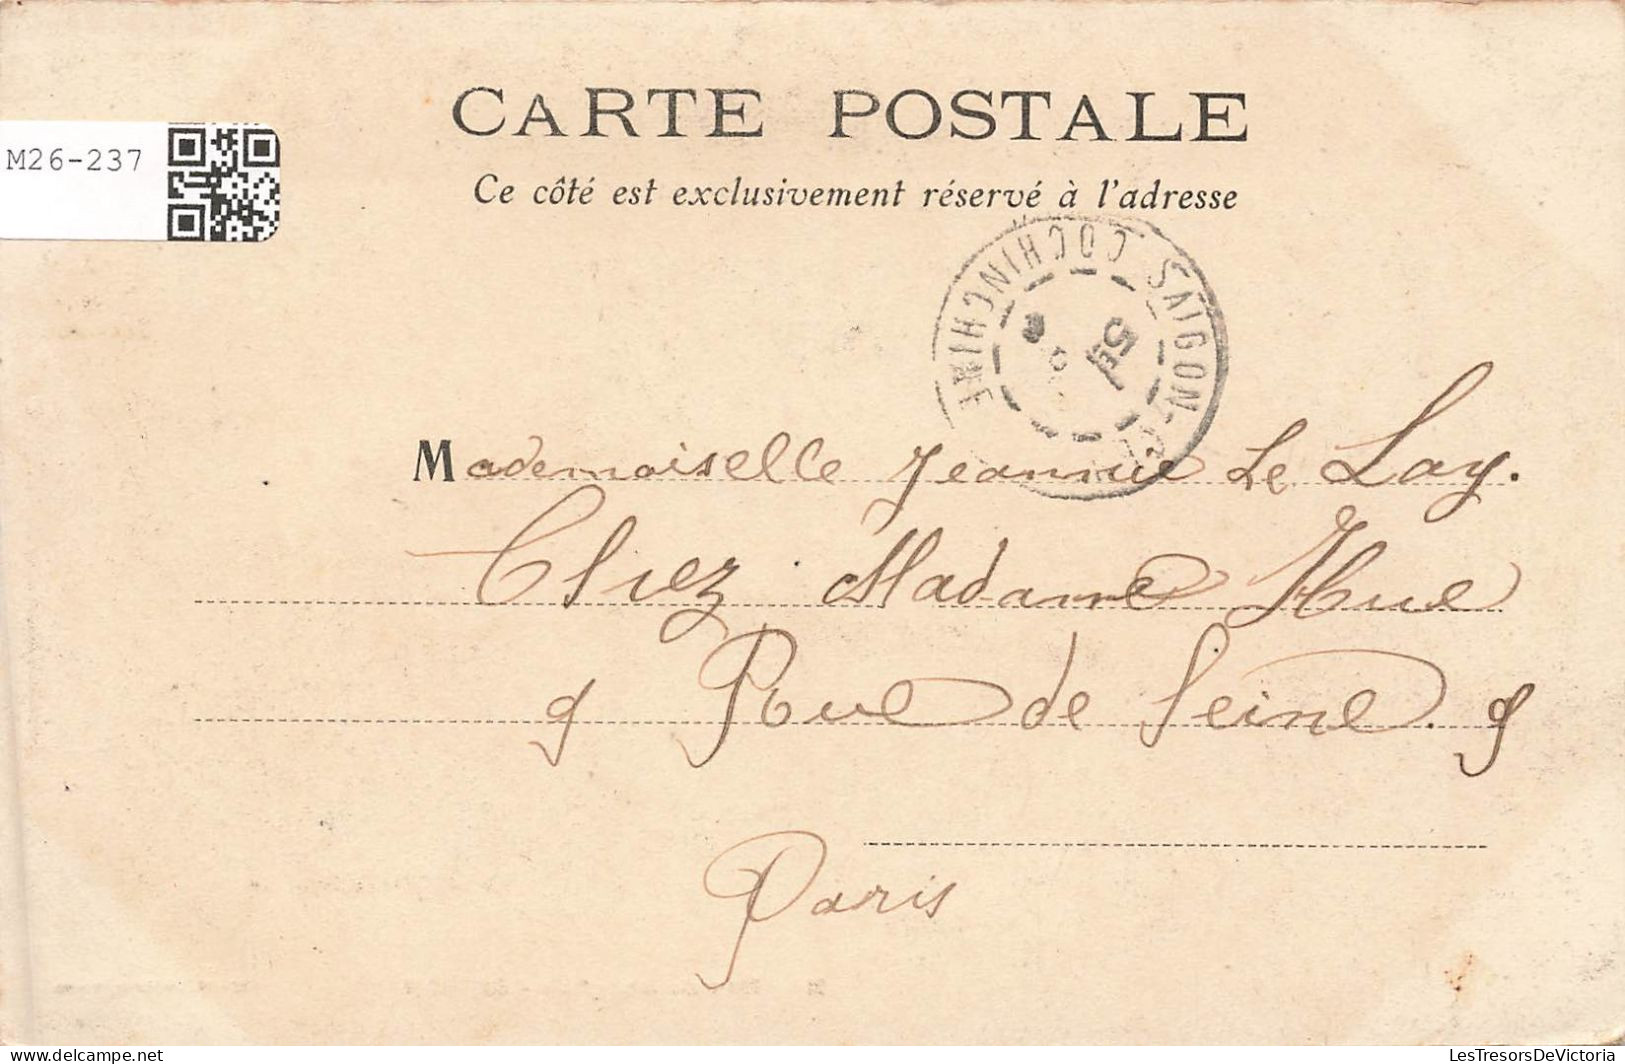 CARTE POSTALE
M26-237
Ce côté est exclusivement réservé à l'adresse
SAIGON
COCHINCHINE
5E
Mademoiselle Jeanne Le Lay.
Chez Madame Hue
9 Rue de Seine. 9
Paris
delcampe.net
LesTresorsDeVictoria